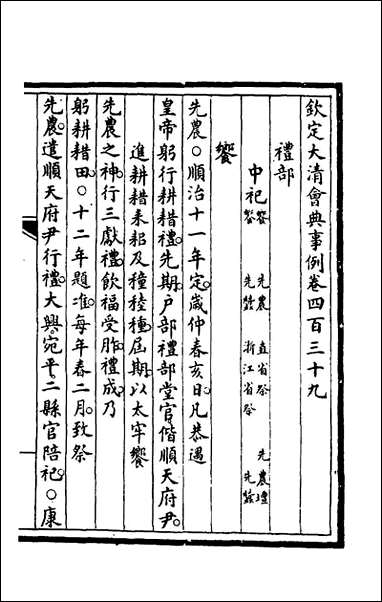 欽定大清會典事例卷四百三十九
禮部
中祀 饗 先農 直省祭 先農壇
饗 先蠶 浙江省祭 先蠶
饗
先農○順治十一年定歲仲春亥日凡恭遇
皇帝躬行耕耤禮先期戶部禮部堂官偕順天府尹
進耕耤耒耜及穜稑種屆期以太牢饗
先農之神行三獻禮飲福受胙禮成乃
躬耕耤田○十二年題准每年春二月致祭
先農遣順天府尹行禮大興宛平二縣官陪祀○康